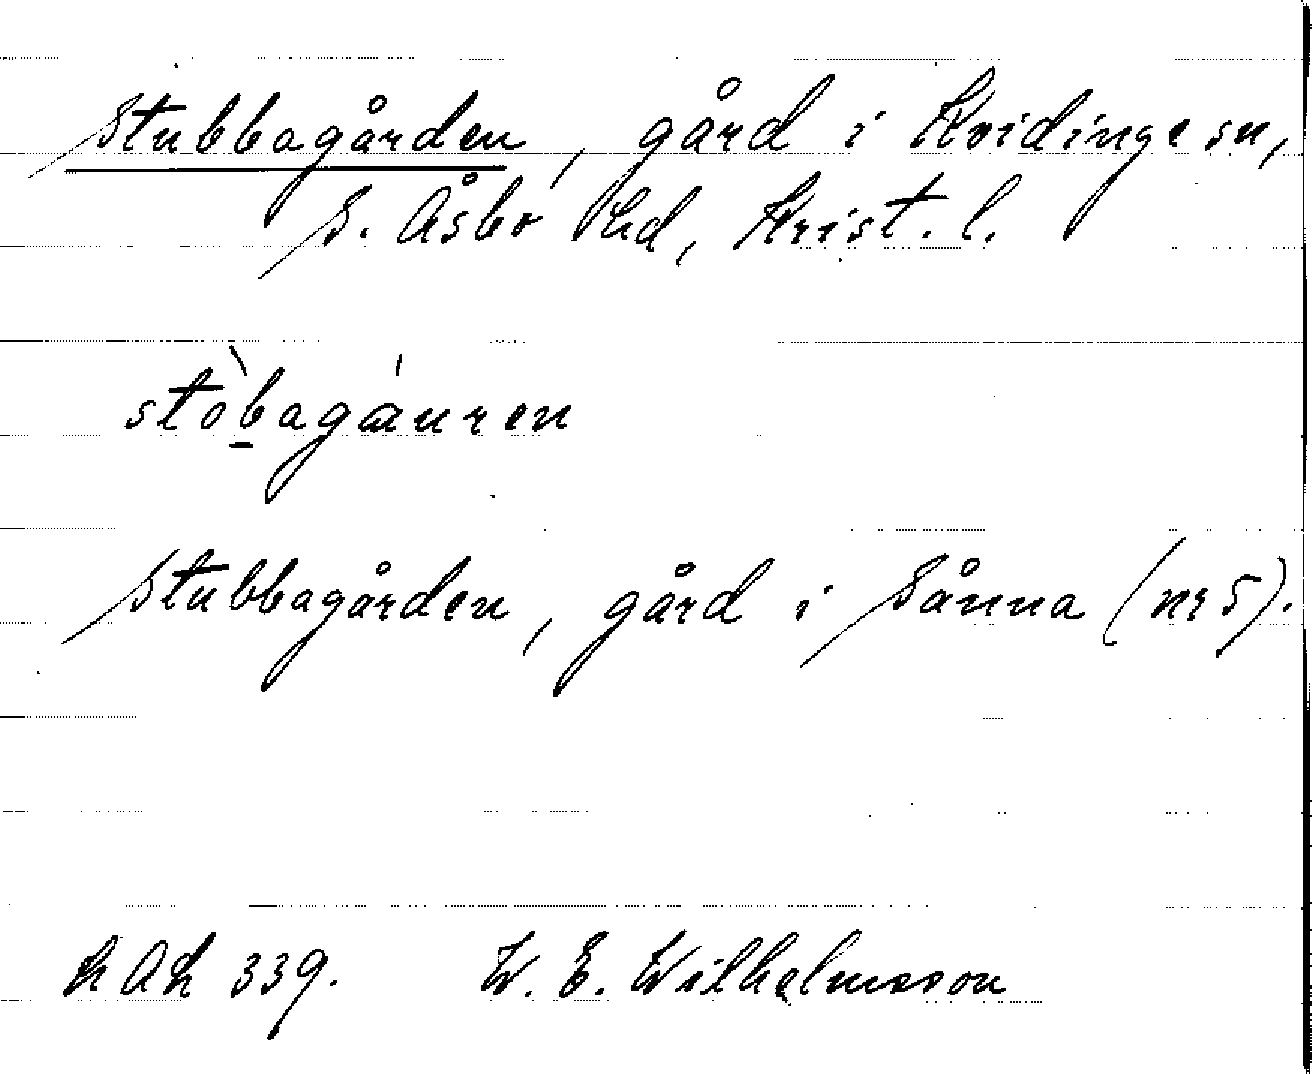 Stubbagården, gård i Kvidinge sn,
S. Åsbo hd, Krist. l.
stòbagäuren
Stubbagården, gård i Sånna (nr 5).
LAL 339. W. E. Wilhelmsson